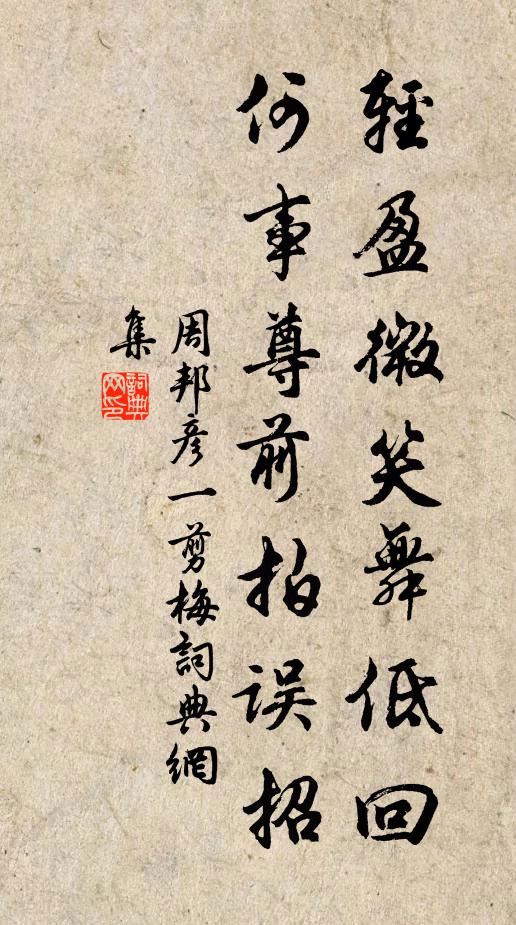 輕盈微笑舞低回
何事尊前拍误招
周邦彦一剪梅詞典網
集
詞典
网印